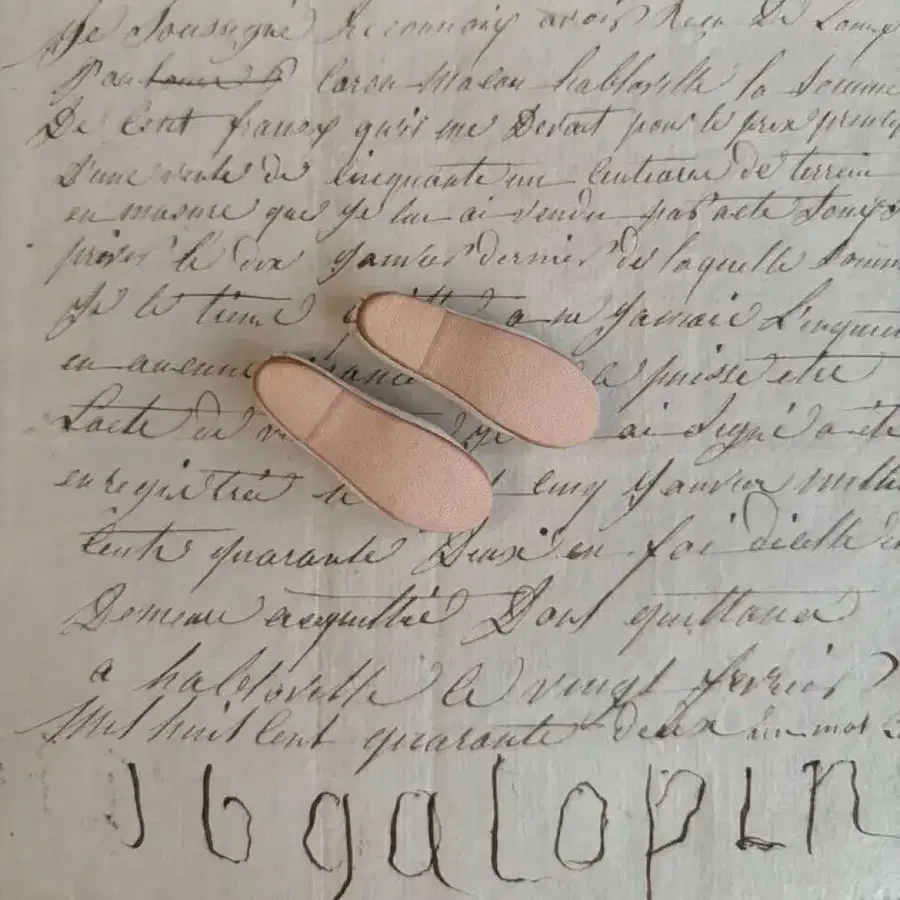 Je Soussigné Reconnais avoir Recu De Louis
Paul Caron Macon habloville la Somme
De Cent francs qu'il me Devait pour le prix princip
D'une vente de Cinquante un Centiares de terrein
en masure que Je lui ai vendu par acte Sous S
privés le dix Janvier dernier de laquelle Somm
Je le tiens quitte a ne Jamais L'inquie
en aucune puisse etre
Lacte de ai Signé a éte
enregistrée le cinq Janvier mil h
Cents quarante Deux en foi dicelle
Demeure acquitté Dont quittance
a habloville le vingt fevrier
Mil huit Cent quarante deux un mot
Jb galopin